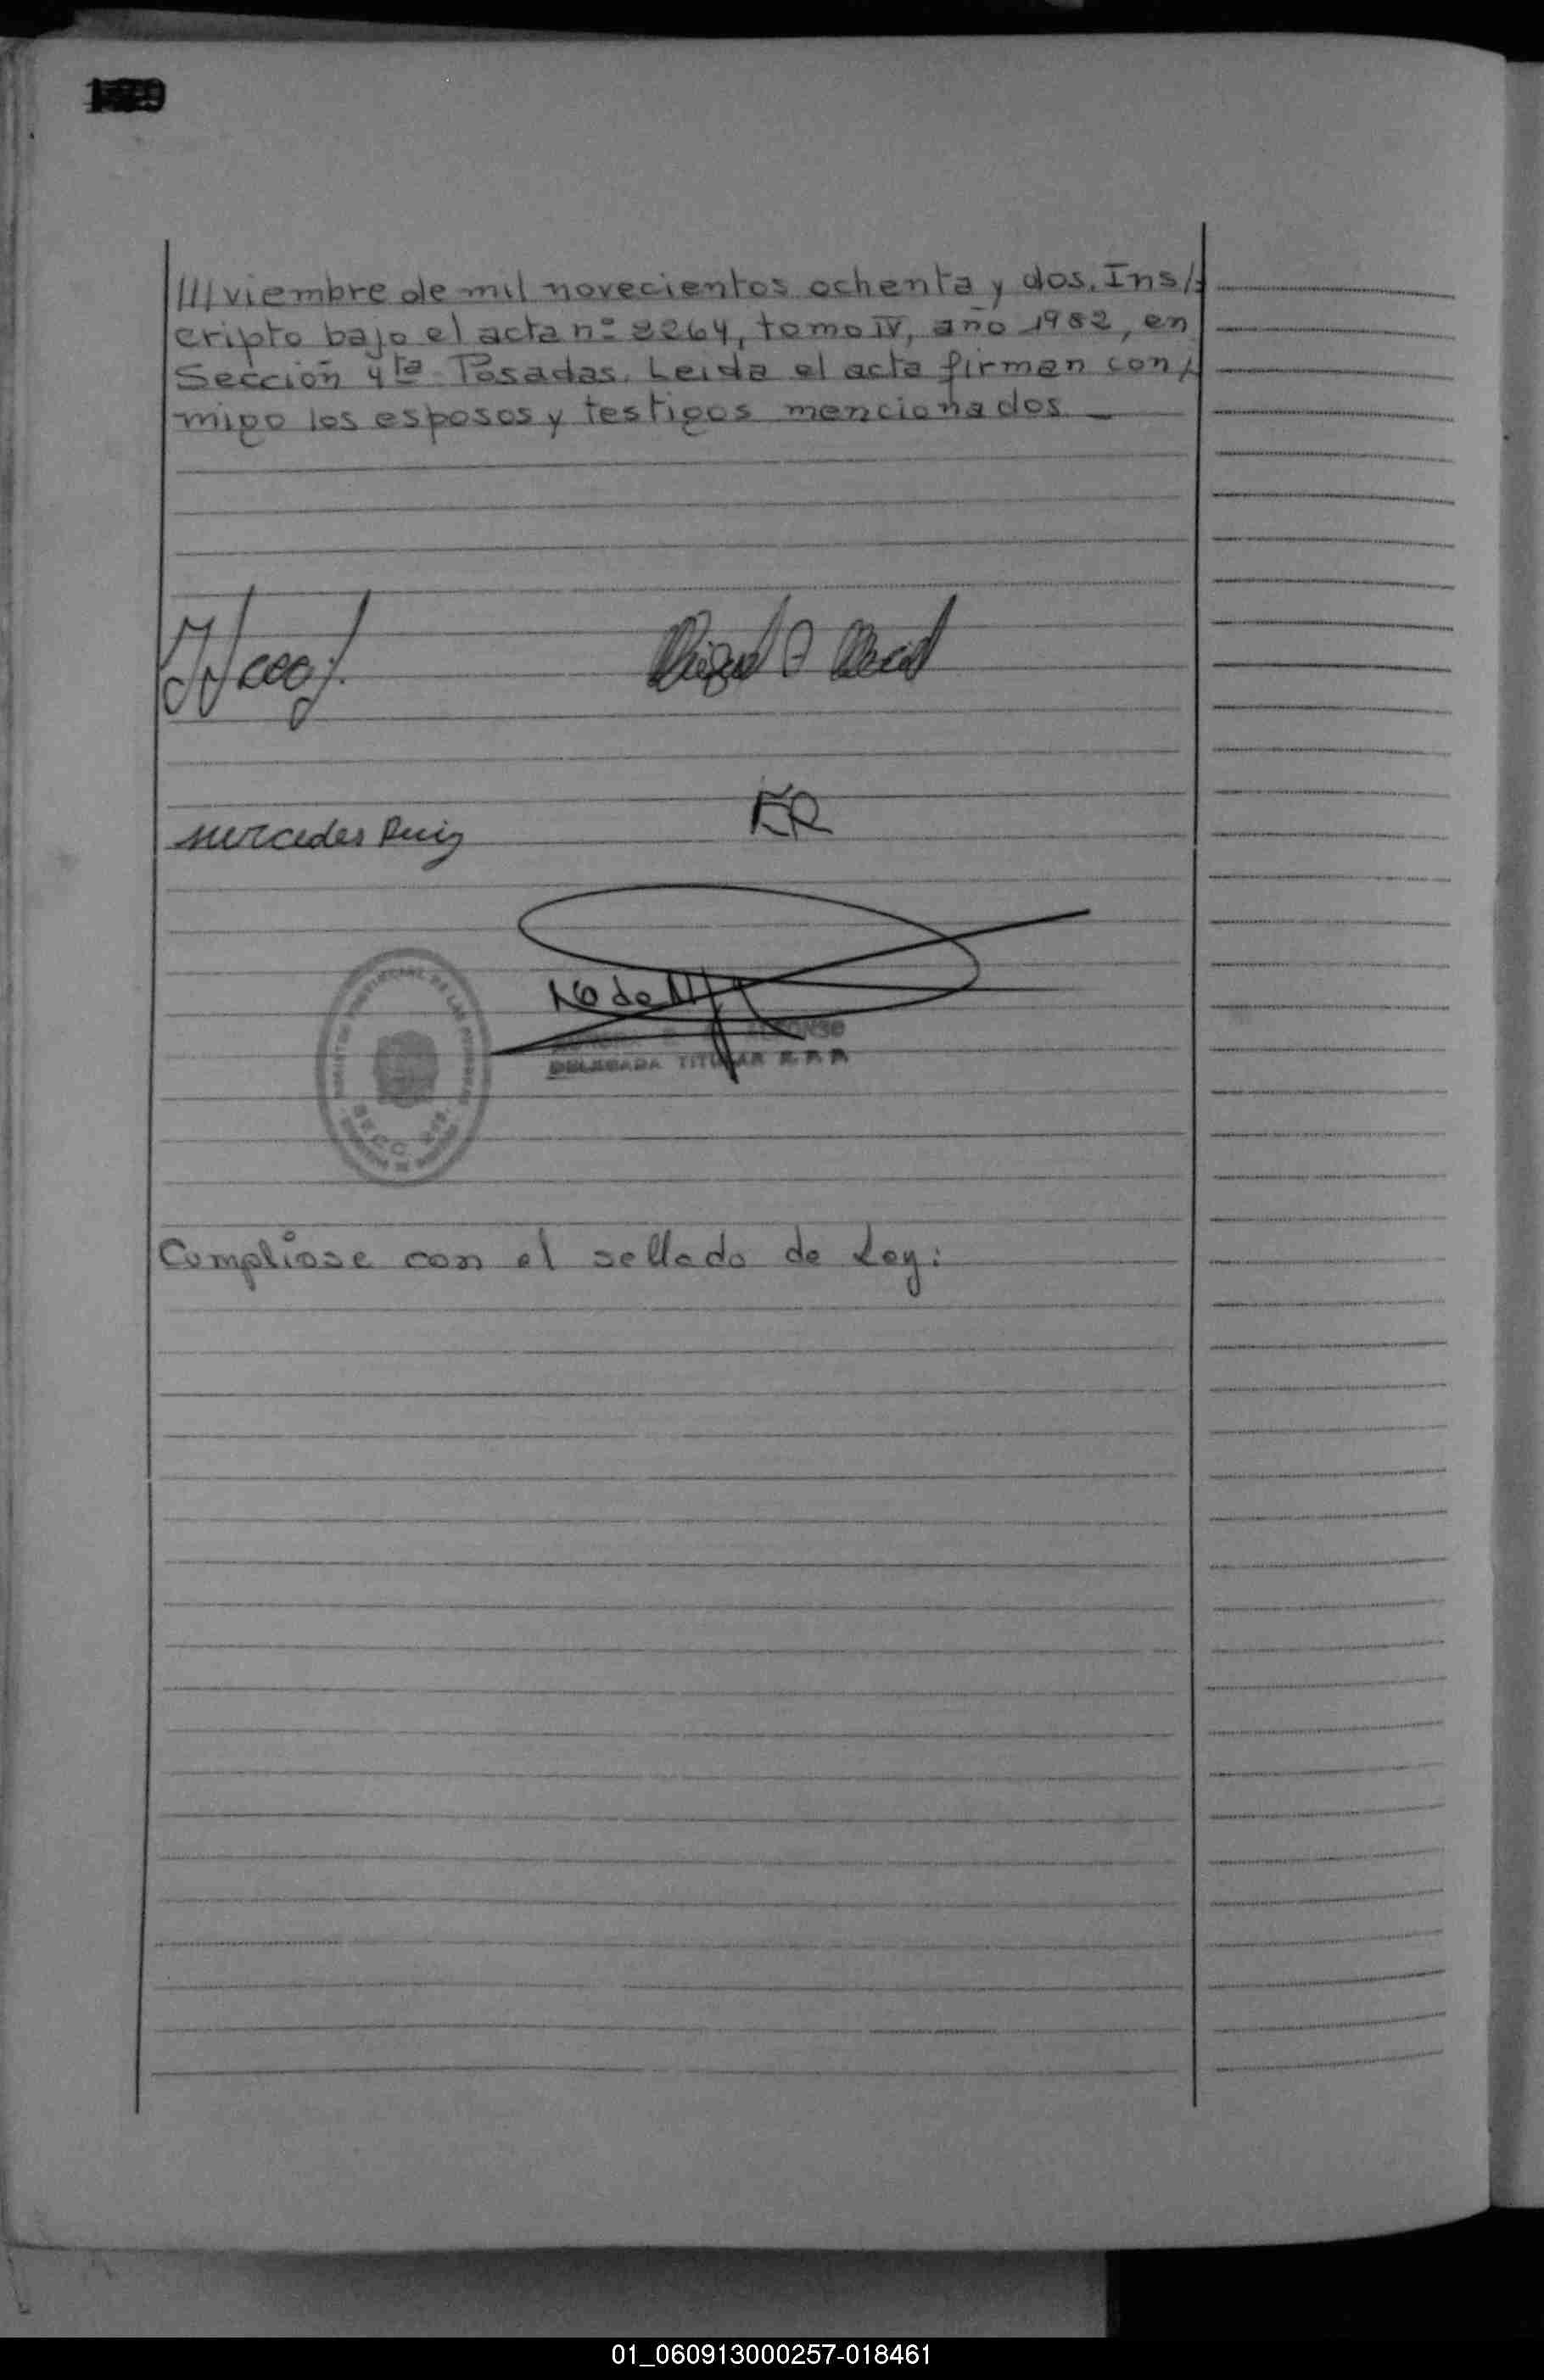 ///viembre de mil novecientos ochenta y dos. Ins/
cripto bajo el acta nº 2264, tomo IV, año 1982, en
Sección 4ta Posadas. Leida el acta firman con/
migo los esposos y testigos mencionados
Mercedes Ruiz
ER
DELEGADA TITULAR R.P.P.
Cumpliose con el sellado de Ley:
01_060913000257-018461